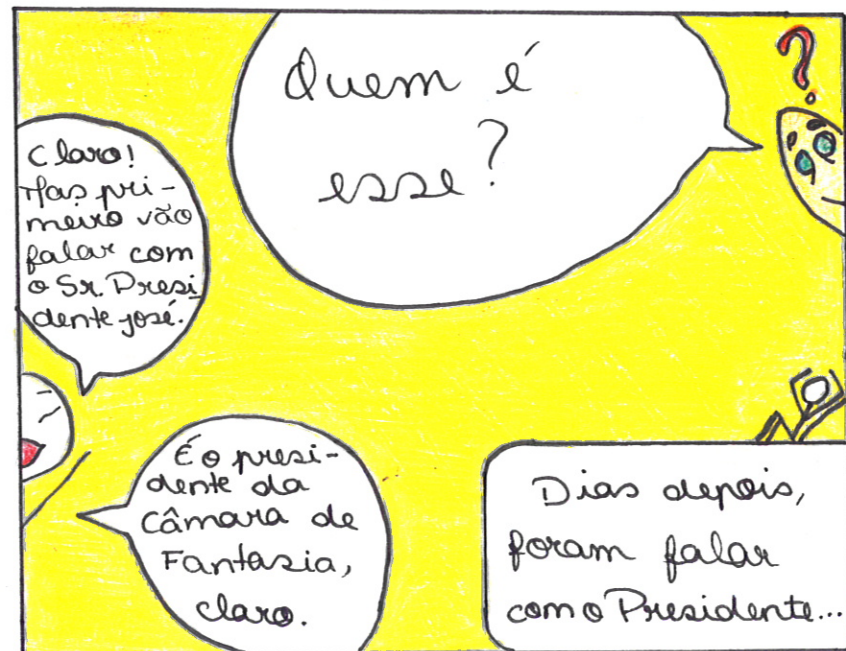 Claro!
Mas pri-
meiro vão
falar com
o Sr. Presi
dente josé.
Quem é
esse?
?
É o presi-
dente da
Câmara de
Fantasia,
claro.
Dias depois,
foram falar
com o Presidente...